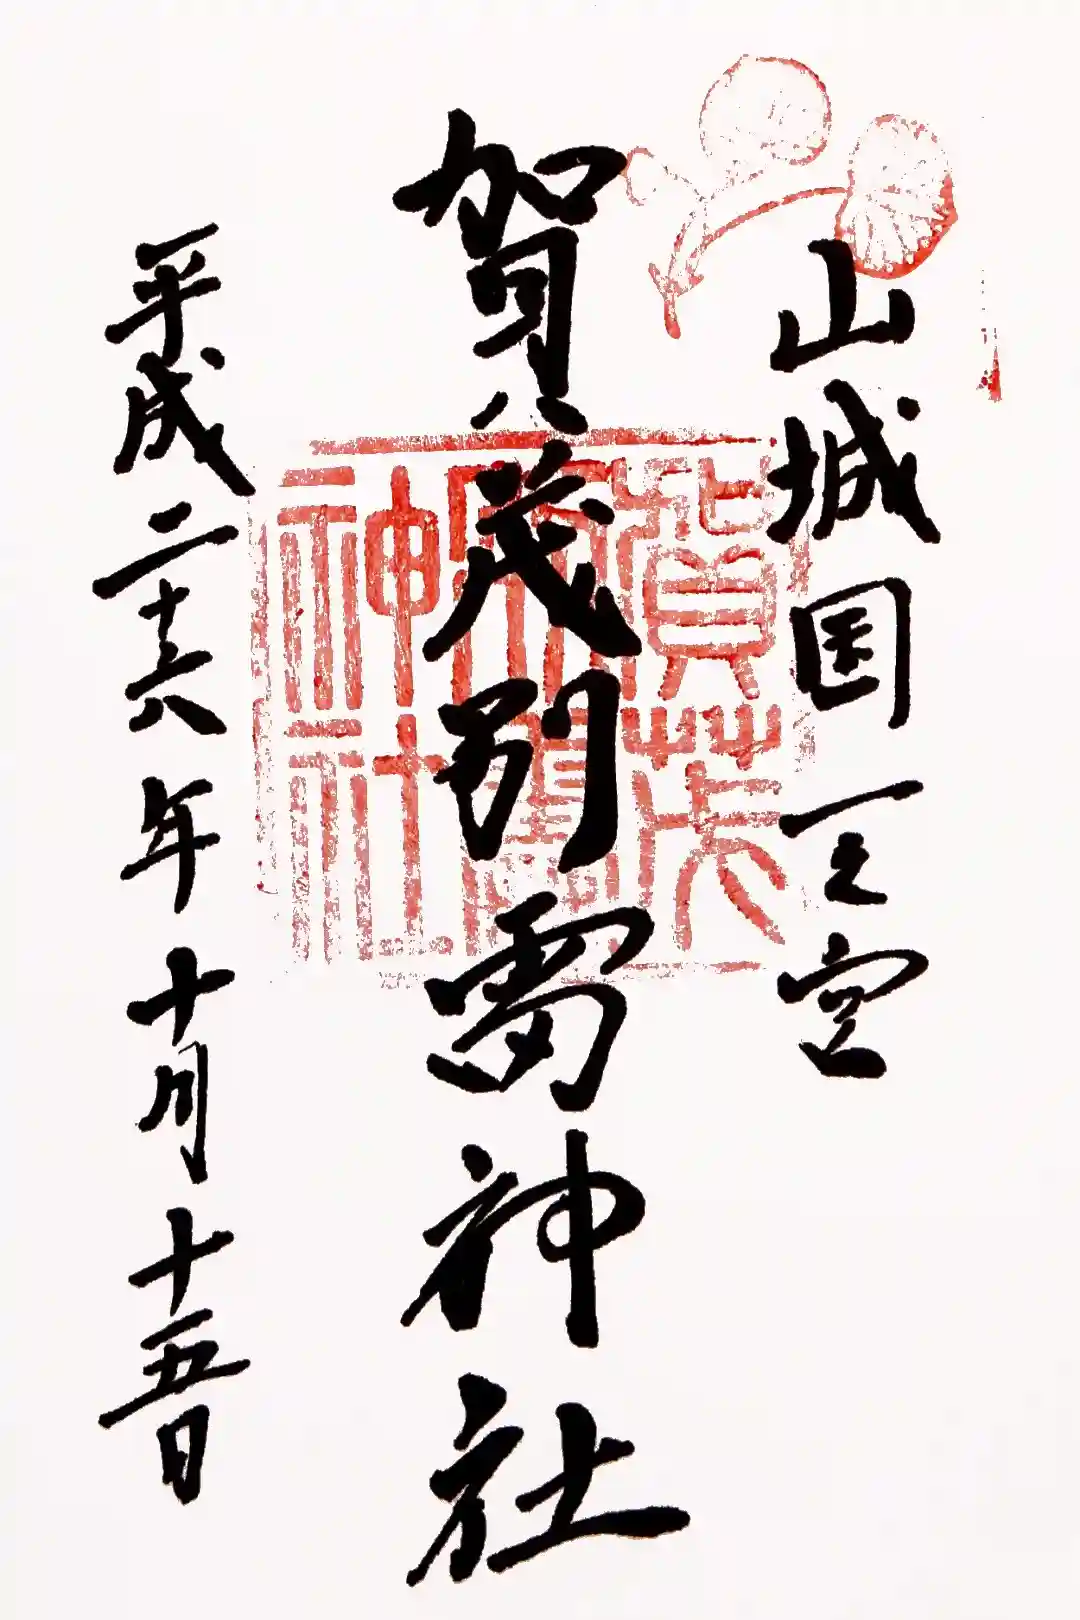 山城国一之宮
賀茂別雷神社
平成二十六年十月十五日
賀茂
別雷
神社